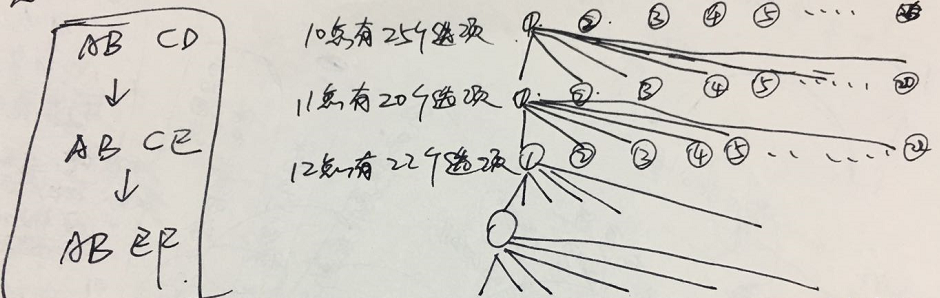 AB CD
↓
AB CE
↓
AB EF
10点有25个选项 ① ② ③ ④ ⑤ ..... 
11点有20个选项 ① ② ③ ④ ⑤ ...... ⑳
12点有22个选项 ① ② ③ ④ ⑤ ....... ㉒